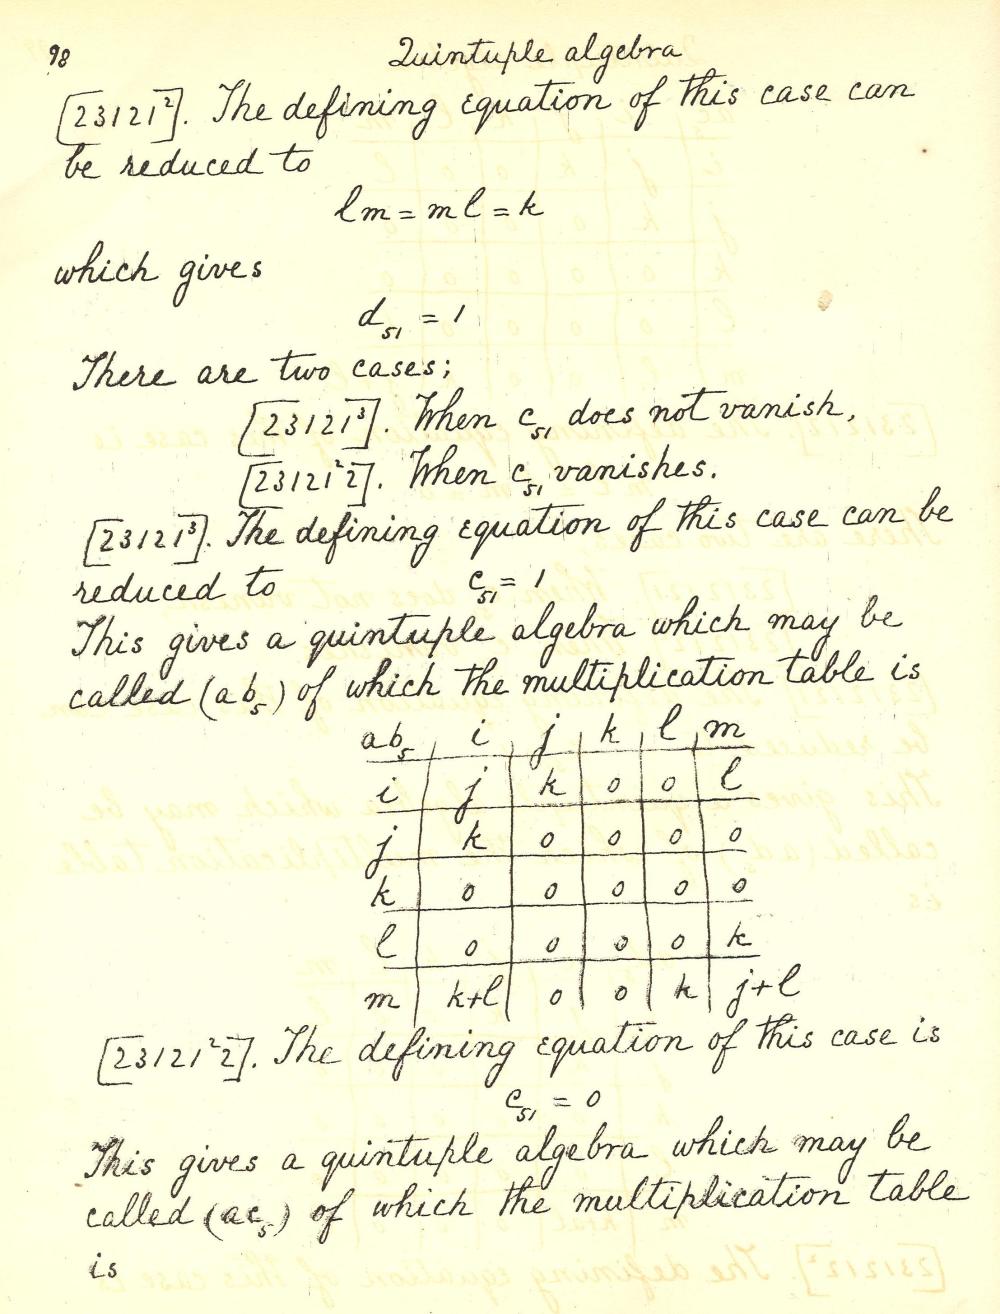 98 Quintuple algebra
[23121²]. The defining equation of this case can
be reduced to
lm = ml = k
which gives
d₅₁ = 1
There are two cases;
[23121³]. When c₅₁ does not vanish,
[23121²2]. When c₅₁ vanishes.
[23121³]. The defining equation of this case can be
reduced to c₅₁ = 1
This gives a quintuple algebra which may be
called (ab₅) of which the multiplication table is
ab₅ i j k l m
i j k 0 0 l
j k 0 0 0 0
k 0 0 0 0 0
l 0 0 0 0 k
m k+l 0 0 k j+l
[23121²2]. The defining equation of this case is
c₅₁ = 0
This gives a quintuple algebra which may be
called (ac₅) of which the multiplication table
is